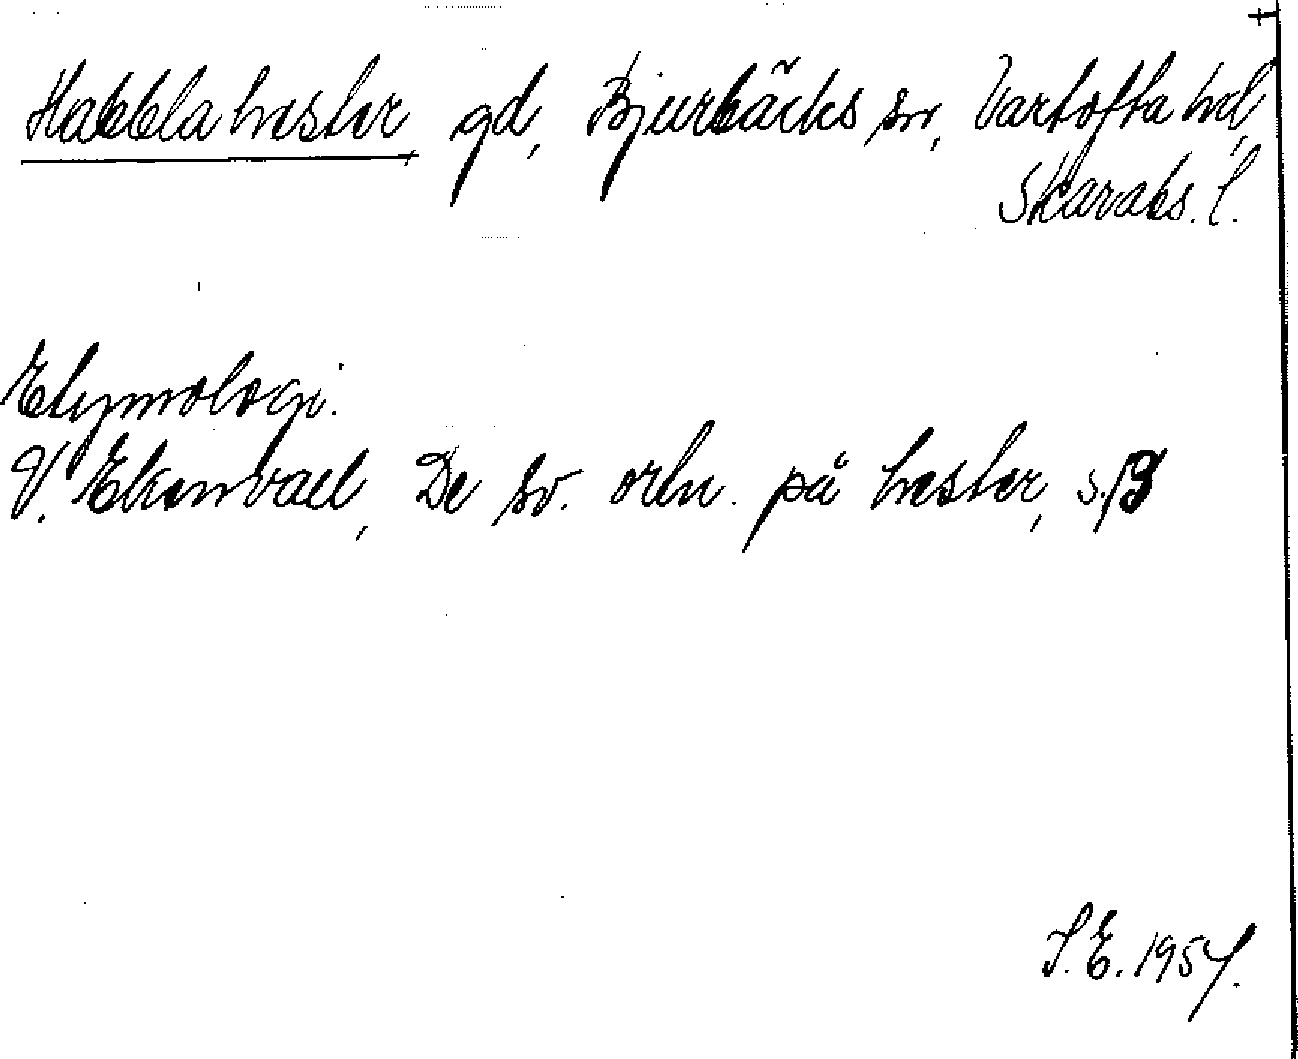 Habblahester, gd, Bjurbäcks sn, Vartofta hd,
Skarabs. l.
Etymologi:
V. Ekenvall, De sv. ortn. på hester, s.
S.E. 1957.